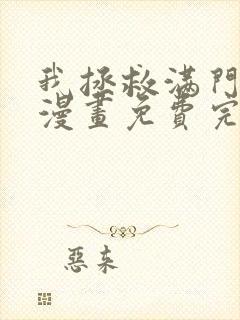 我拯救滿門
漫畫免費完
惡来